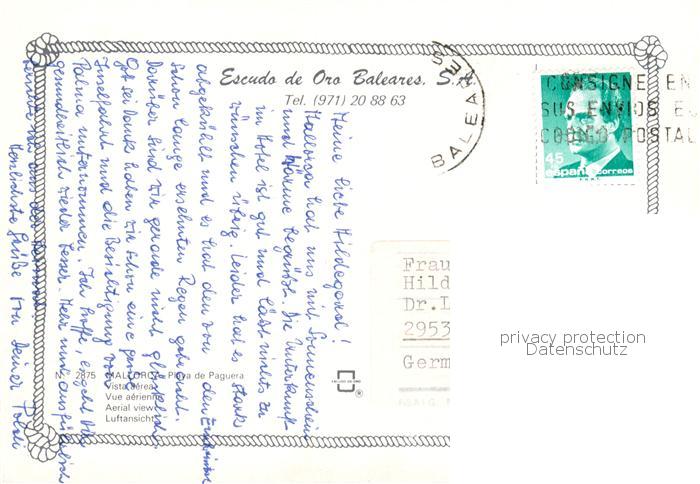 Escudo de Oro Baleares. S.A.
Tel. (971) 20 88 63
BALEARES
CONSIGNE EN
SUS ENVIOS EL
CODIGO POSTAL
45
españa correos
Meine liebe Hildegard!
Mallorca hat uns mit Sonnenschein
und Wärme begrüßt. Die Unterkunft
im Hotel ist gut und läßt nichts zu
wünschen übrig. Leider hat es stark
abgekühlt und es hat den von den Einheimischen
schon lange ersehnten Regen gebracht.
Darüber sind wir gerade nicht glücklich.
Gott sei Dank haben wir schon eine
Inselfahrt und die Besichtigung von
Palma unternommen. Ich hoffe, es geht Dir
gesundheitlich wieder besser. Mehr und ausführlich
Herzlichste Grüße von Deiner
Frau
Hild
Dr.L
2953
Germ
N.º 2875 MALLORCA - Playa de Paguera
Vista aérea
Vue aérienne
Aerial view
Luftansicht
ESCUDO DE ORO
®
privacy protection
Datenschutz